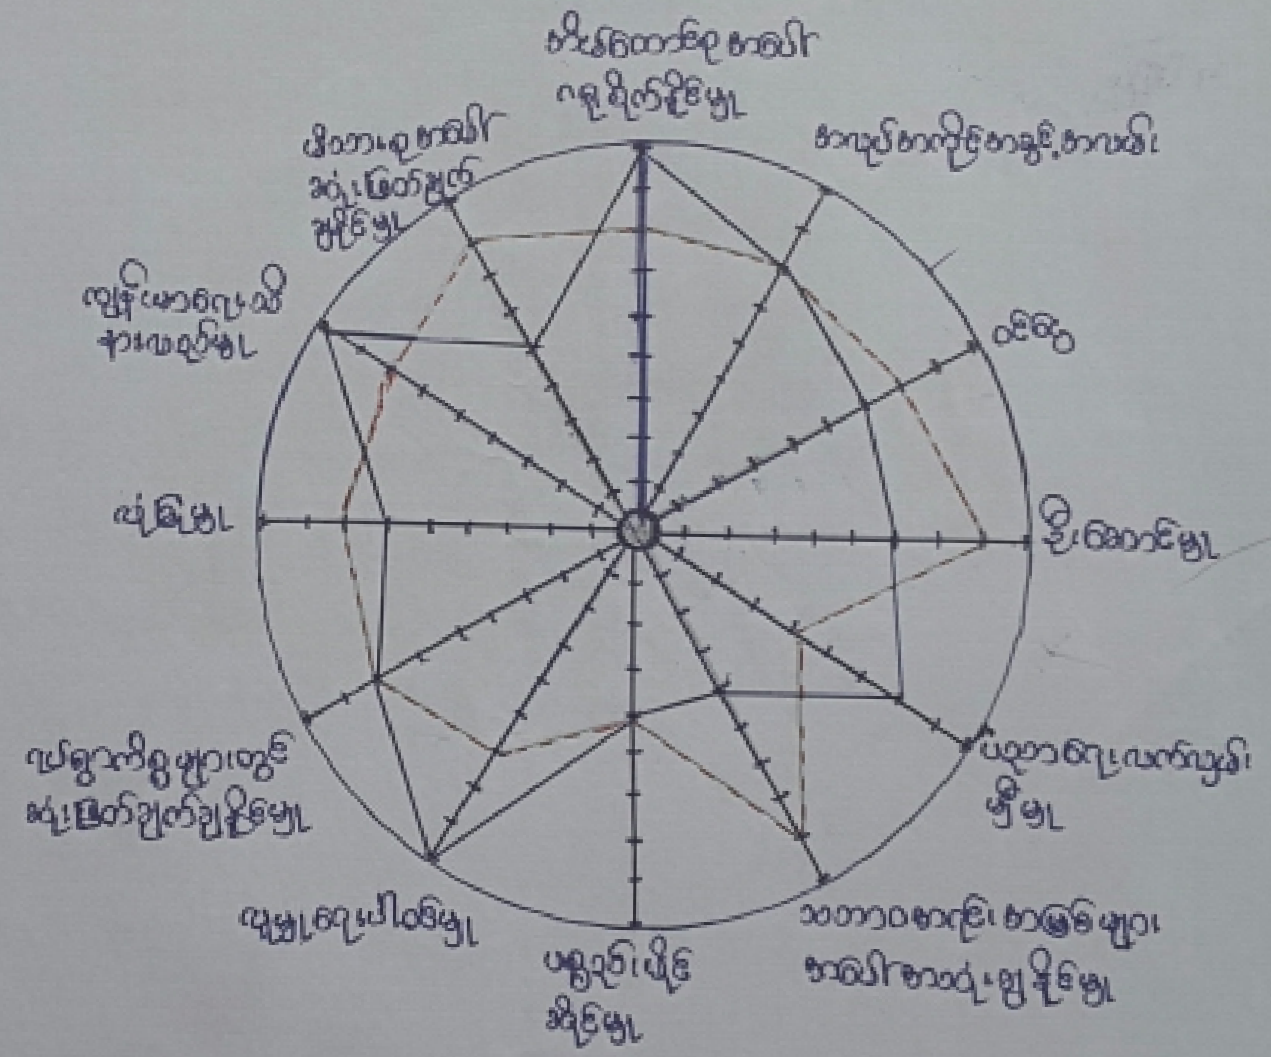 ကိုယ်တော်ရေအပေါ်
ဂရုစိုက်နိုင်မှု
အလုပ်အကိုင်အခွင့်အလမ်း
ဝင်ငွေ
ဦးဆောင်မှု
ပညာရေးလက်လှမ်း
မှီမှု
သဘာဝအရင်းအမြစ်များ
အပေါ်အသုံးချနိုင်မှု
ပစ္စည်းပိုင်
ဆိုင်မှု
လူမှုရေးပါဝင်မှု
ရပ်ရွာကိစ္စများတွင်
ဆုံးဖြတ်ချက်ချနိုင်မှု
လုံခြုံမှု
ကျန်းမာရေးသိ
နားလည်မှု
မိသားစုအပေါ်
ဆုံးဖြတ်ချက်
ချနိုင်မှု